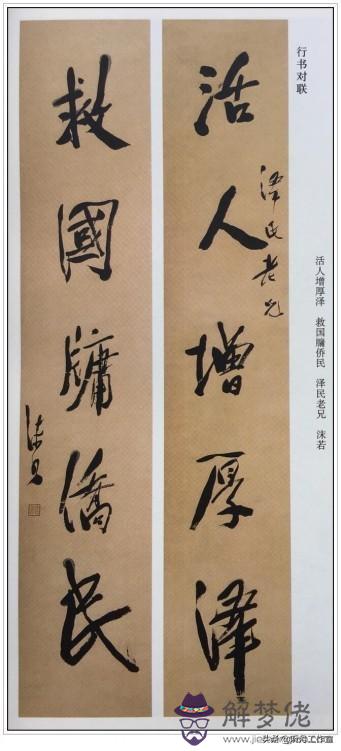 行书对联
活人增厚泽 救国牖侨民 泽民老兄 沫若
活人增厚泽
泽民老兄
救國牖僑民
沫若
解梦佬
www.jie
头条@
工作室